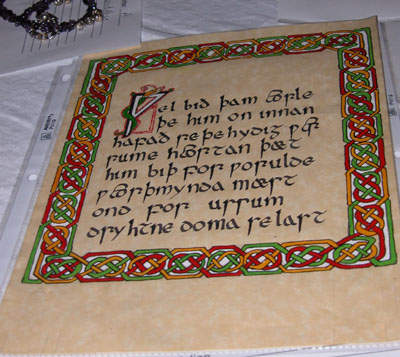 Ƿel bið þam eorle
þe him on innan
hafað reþehydig ƿer
rume heortan þæt
him biþ for ƿorulde
ƿeorþmynda mæst
ond for ussum
dryhtne doma selast